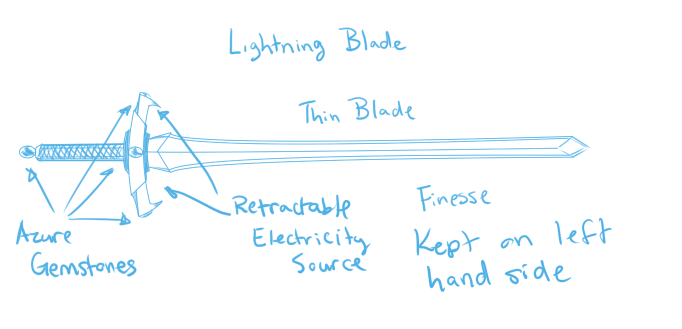 Lightning Blade
Thin Blade
Azure
Gemstones
Retractable
Electricity
Source
Finesse
Kept on left
hand side